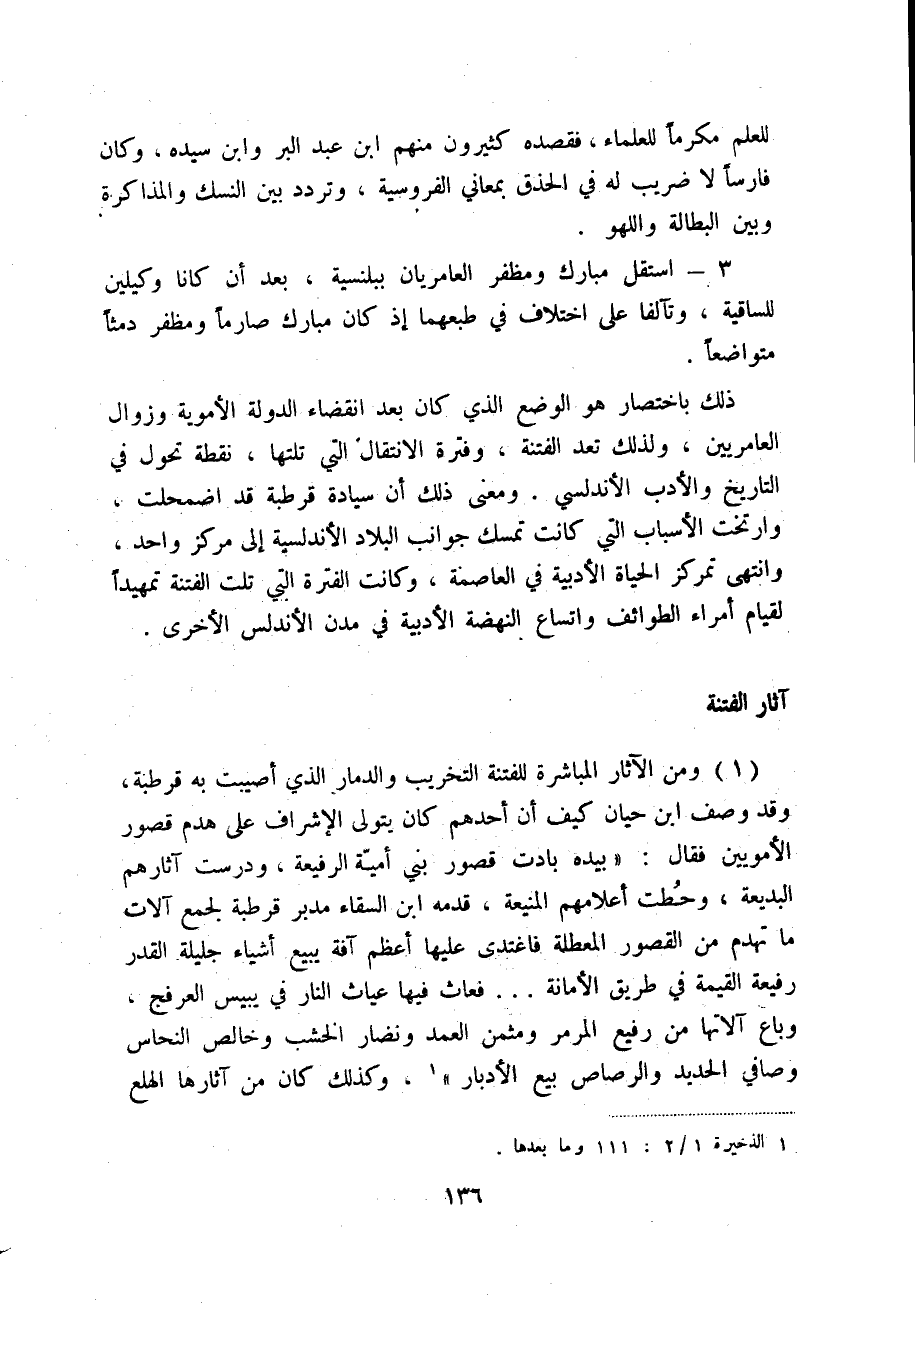 للعلم مكرماً للعلماء ، فقصده كثيرون منهم ابن عبد البر وابن سيده ، وكان
فارساً لا ضريب له في الحذق بمعاني الفروسية ، وتردد بين النسك والمذاكرة
وبين البطالة واللهو .
٣ – استقل مبارك ومظفر العامريان ببلنسية ، بعد أن كانا وكيلين
للساقية ، وتآلفا على اختلاف في طبعهما إذ كان مبارك صارماً ومظفر دمثاً
متواضعاً .
ذلك باختصار هو الوضع الذي كان بعد انقضاء الدولة الأموية وزوال
العامريين ، ولذلك تعد الفتنة ، وفترة الانتقال التي تلتها ، نقطة تحول في
التاريخ والأدب الأندلسي . ومعنى ذلك أن سيادة قرطبة قد اضمحلت ،
وارتخت الأسباب التي كانت تمسك جوانب البلاد الأندلسية إلى مركز واحد ،
وانتهى تمركز الحياة الأدبية في العاصمة ، وكانت الفترة التي تلت الفتنة تمهيداً
لقيام أمراء الطوائف واتساع النهضة الأدبية في مدن الأندلس الأخرى .
آثار الفتنة
(١) ومن الآثار المباشرة للفتنة التخريب والدمار الذي أصيبت به قرطبة،
وقد وصف ابن حيان كيف أن أحدهم كان يتولى الإشراف على هدم قصور
الأمويين فقال : « بيده بادت قصور بني أميّة الرفيعة ، ودرست آثارهم
البديعة ، وحُطت أعلامهم المنيعة ، قدمه ابن السقاء مدبر قرطبة لجمع آلات
ما تهدم من القصور المعطلة فاغتدى عليها أعظم آفة يبيع أشياء جليلة القدر
رفيعة القيمة في طريق الأمانة ... فعاث فيها عياث النار في يبيس العرفج ،
وباع آلاتها من رفيع المرمر ومثمن العمد ونضار الخشب وخالص النحاس
وصافي الحديد والرصاص بيع الأدبار »١ . وكذلك كان من آثارها الهلع
١ الذخيرة ٢/١ : ١١١ وما بعدها .
١٣٦